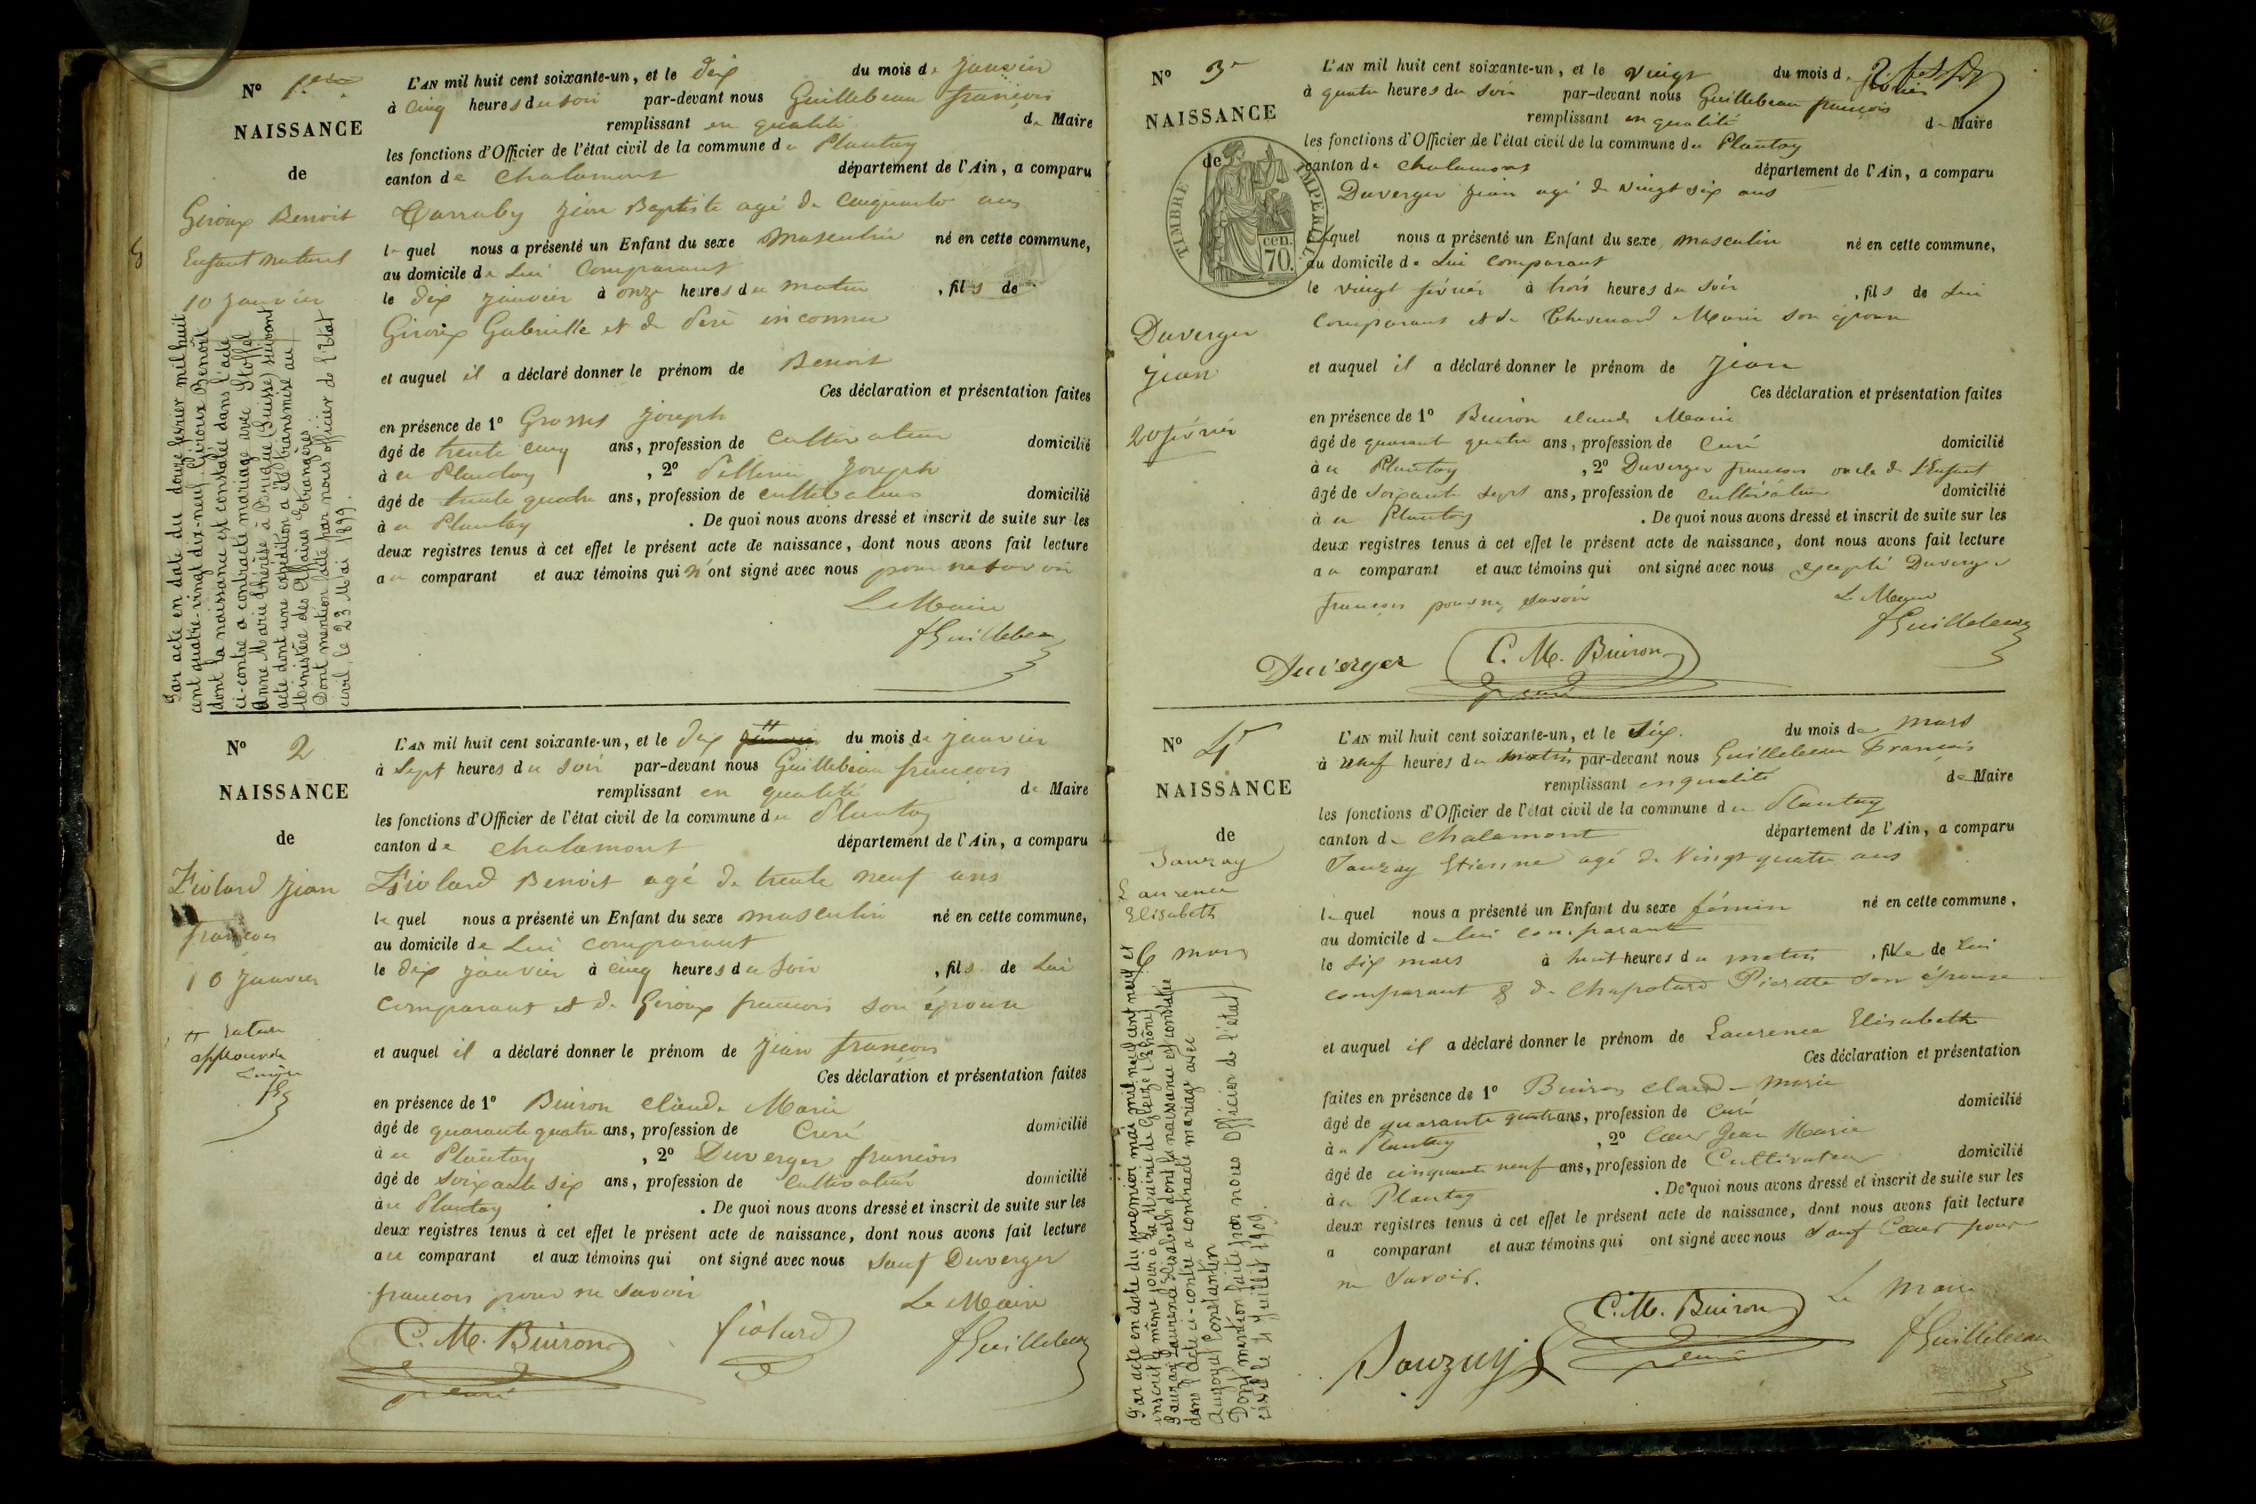 N° 1er
NAISSANCE
de
Giroux Benoit
Enfant naturel
10 janvier
Par acte en date du douze février mil huit
cent quatre-vingt dix-neuf Giroux Benoît
dont la naissance est constatée dans l'acte
ci-contre a contracté mariage avec Stoffel
Anne Marie thérèse à Brigue (Suisse) suivant
acte dont une expédition a été transmise au
Ministère des Affaires Etrangères.
Dont mention faite par nous officier de l'Etat
civil, le 23 Mai 1899.
L'AN mil huit cent soixante-un, et le dix du mois de janvier
à cinq heures du soir par-devant nous Guillebeau francois
remplissant en qualité de Maire
les fonctions d'Officier de l'état civil de la commune du Plantay
canton de chalamont département de l'Ain, a comparu
jean Baptiste agé de cinquante ans
lequel nous a présenté un Enfant du sexe masculin né en cette commune,
au domicile de Lui Comparant
le dix janvier à onze heures du matin , fils de
Giroux Gabrielle et de père inconnu
et auquel il a déclaré donner le prénom de Benoit
Ces déclaration et présentation faites
en présence de 1° joseph
âgé de trente cinq ans, profession de cultivateur domicilié
à u Plantay , 2° joseph
âgé de trente quatre ans, profession de cultivateur domicilié
à u Plantay . De quoi nous avons dressé et inscrit de suite sur les
deux registres tenus à cet effet le présent acte de naissance, dont nous avons fait lecture
au comparant et aux témoins qui n'ont signé avec nous pour ne savoir
Le Maire
fGuillebeau
N° 2
NAISSANCE
de
Fiolard jean
francois
10 janvier
rature
approuvée
L'AN mil huit cent soixante-un, et le dix janvier du mois de janvier
à sept heures du soir par-devant nous Guillebeau francois
remplissant en qualité de Maire
les fonctions d'Officier de l'état civil de la commune du Plantay
canton de chalamont département de l'Ain, a comparu
Fiolard Benoit agé de trente neuf ans
lequel nous a présenté un Enfant du sexe masculin né en cette commune,
au domicile de Lui comparant
le dix janvier à cinq heures du soir , fils de Lui
comparant et de Giroux francois son épouse
et auquel il a déclaré donner le prénom de jean francois
Ces déclaration et présentation faites
en présence de 1° Buiron claude Marie
âgé de quarante quatre ans, profession de Curé domicilié
à u Plantay , 2° Duverger francois
âgé de soixante six ans, profession de cultivateur domicilié
à u Plantay . De quoi nous avons dressé et inscrit de suite sur les
deux registres tenus à cet effet le présent acte de naissance, dont nous avons fait lecture
au comparant et aux témoins qui ont signé avec nous sauf Duverger
francois pour ne savoir
Le Maire
C. M. Buiron
fiolard
fGuillebeau
curé
N° 3
NAISSANCE
de
TIMBRE IMPERIAL
70 cen.
Duverger
jean
20 février
L'AN mil huit cent soixante-un, et le vingt du mois de février
à quatre heures du soir par-devant nous Guillebeau francois
remplissant en qualité de Maire
les fonctions d'Officier de l'état civil de la commune du Plantay
canton de chalamont département de l'Ain, a comparu
Duverger jean agé de vingt six ans
lequel nous a présenté un Enfant du sexe masculin né en cette commune,
au domicile de Lui comparant
le vingt février à trois heures du soir , fils de Lui
comparant et de Marie son épouse
et auquel il a déclaré donner le prénom de jean
Ces déclaration et présentation faites
en présence de 1° Buiron claude Marie
âgé de quarante quatre ans, profession de Curé domicilié
à u Plantay , 2° Duverger francois oncle de L'Enfant
âgé de soixante sept ans, profession de cultivateur domicilié
à u Plantay . De quoi nous avons dressé et inscrit de suite sur les
deux registres tenus à cet effet le présent acte de naissance, dont nous avons fait lecture
au comparant et aux témoins qui ont signé avec nous excepté Duverger
francois pour ne savoir
Le Maire
fGuillebeau
Duverger
C. M. Buiron
curé
N° 4
NAISSANCE
de
Laurence
Elisabeth
6 mars
Par acte en date du premier mai mil neuf cent neuf et
inscrit le même jour à la Mairie de Gleizé (Rhône)
Laurence Elisabeth dont la naissance est constatée
dans l'acte ci-contre a contracté mariage avec
Constantin
Dont mention faite par nous Officier de l'état
civil le 4 Juillet 1909.
L'AN mil huit cent soixante-un, et le six du mois de mars
à neuf heures du matin par-devant nous Guillebeau Francois
remplissant en qualité de Maire
les fonctions d'Officier de l'état civil de la commune du Plantay
canton de chalamont département de l'Ain, a comparu
Etienne agé de vingt quatre ans
lequel nous a présenté un Enfant du sexe féminin né en cette commune,
au domicile de lui comparant
le six mars à huit heures du matin , fille de Lui
comparant & de Chapolard Pierette son épouse
et auquel il a déclaré donner le prénom de Laurence Elisabeth
Ces déclaration et présentation
faites en présence de 1° Buiron claude Marie
âgé de quarante quatre ans, profession de Curé domicilié
à u Plantay , 2° Cœur Jean Marie
âgé de cinquante neuf ans, profession de Cultivateur domicilié
à u Plantay . De quoi nous avons dressé et inscrit de suite sur les
deux registres tenus à cet effet le présent acte de naissance, dont nous avons fait lecture
a comparant et aux témoins qui ont signé avec nous sauf Cœur pour
ne savoir.
Le Maire
C. M. Buiron
fGuillebeau
curé